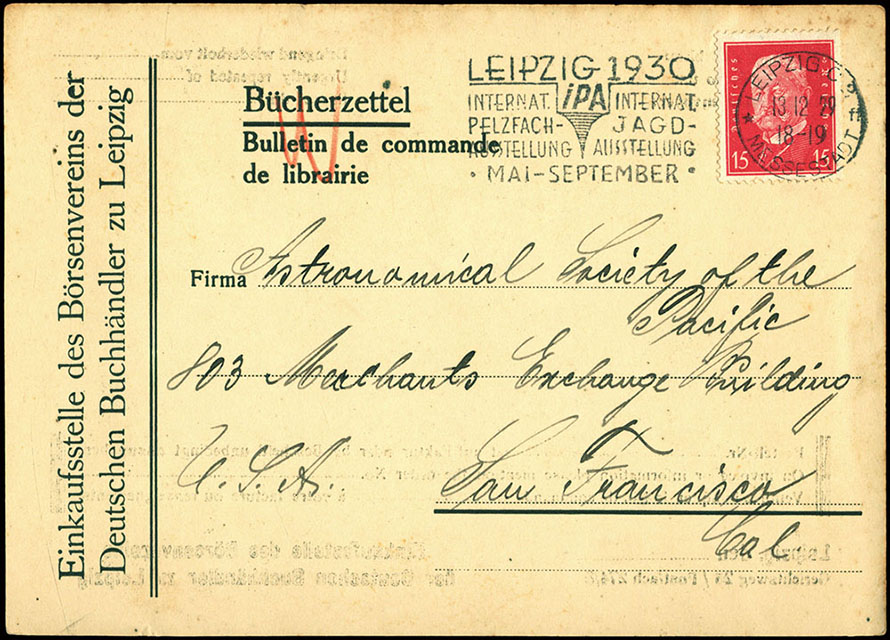 Einkaufsstelle des Börsenvereins der
Deutschen Buchhändler zu Leipzig
Bücherzettel
Bulletin de commande
de librairie
LEIPZIG 1930
INTERNAT. iPA INTERNAT.
PELZFACH- JAGD-
AUSSTELLUNG AUSSTELLUNG
• MAI-SEPTEMBER •
* LEIPZIG C2
13 12 29
18-19
MESSESTADT
15 15
Firma Astronomical Society of the
Pacific
803 Merchants Exchange Building
U. S. A. San Francisco
Cal